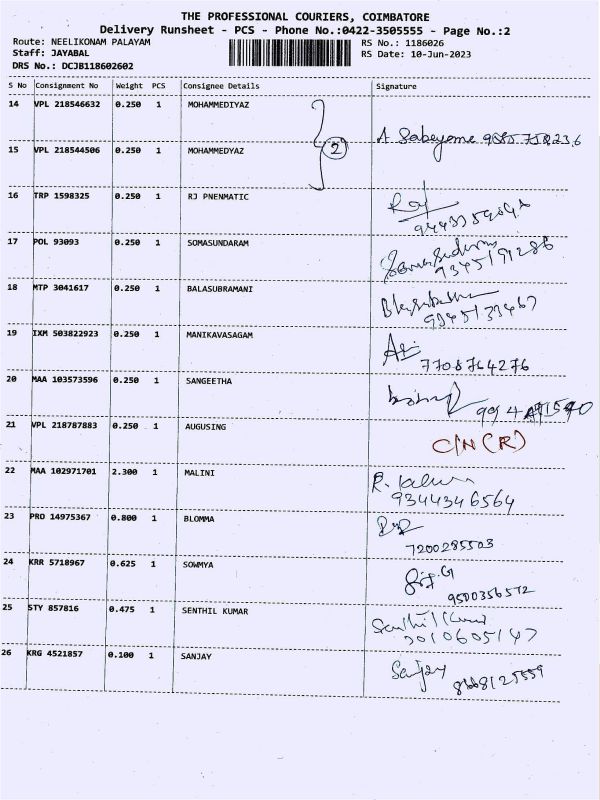 THE PROFESSIONAL COURIERS, COIMBATORE
Delivery Runsheet - PCS - Phone No.:0422-3505555 - Page No.:2
Route: NEELIKONAM PALAYAM RS No.: 1186026
Staff: JAYABAL RS Date: 10-Jun-2023
DRS No.: DCJB118602602
S No Consignment No Weight PCS Consignee Details Signature
14 VPL 218546632 0.250 1 MOHAMMEDIYAZ
2
15 VPL 218544506 0.250 1 MOHAMMEDYAZ
16 TRP 1598325 0.250 1 RJ PNENMATIC
17 POL 93093 0.250 1 SOMASUNDARAM
18 MTP 3041617 0.250 1 BALASUBRAMANI
19 IXM 503822923 0.250 1 MANIKAVASAGAM
7708764276
20 MAA 103573596 0.250 1 SANGEETHA
21 VPL 218787883 0.250 1 AUGUSING
C/N (R)
22 MAA 102971701 2.300 1 MALINI
9344346564
23 PRO 14975367 0.800 1 BLOMMA
7200285503
24 KRR 5718967 0.625 1 SOWMYA
9500356572
25 STY 857816 0.475 1 SENTHIL KUMAR
26 KRG 4521857 0.100 1 SANJAY Sanjay